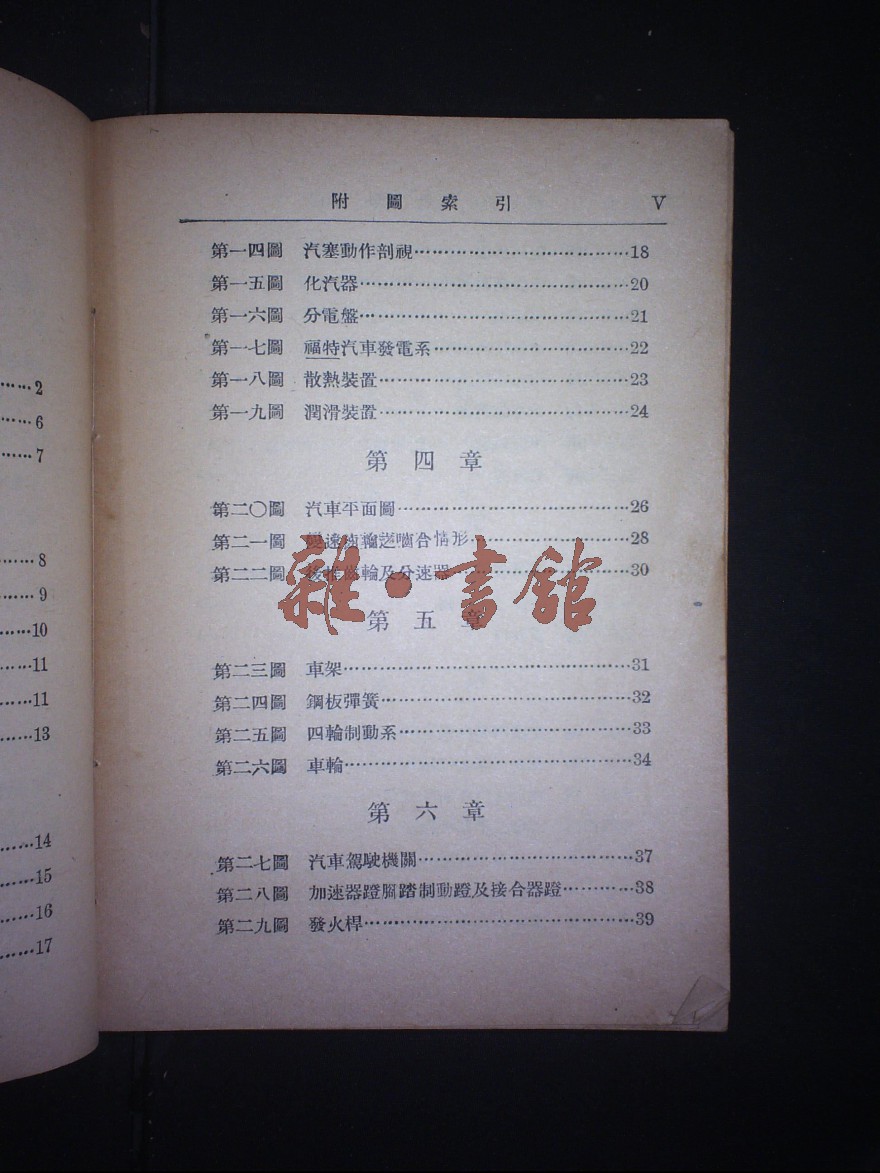 2
6
7
8
9
10
11
11
13
14
15
16
17
附圖索引 V
第一四圖 汽塞動作剖視……18
第一五圖 化汽器……20
第一六圖 分電盤……21
第一七圖 福特汽車發電系……22
第一八圖 散熱裝置……23
第一九圖 潤滑裝置……24
第四章
第二〇圖 汽車平面圖……26
第二一圖 變速齒輪 嚙合情形……28
第二二圖 齒輪及分速器……30
雜·書舘
第五章
第二三圖 車架……31
第二四圖 鋼板彈簧……32
第二五圖 四輪制動系……33
第二六圖 車輪……34
第六章
第二七圖 汽車駕駛機關……37
第二八圖 加速器蹬腳踏制動蹬及接合器蹬……38
第二九圖 發火桿……39